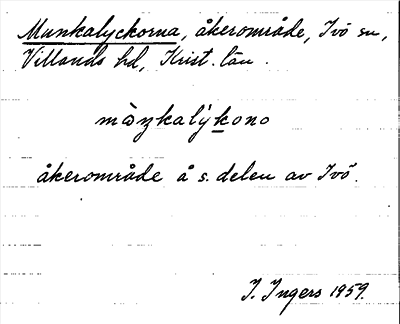 Munkalyckorna, åkerområde, Ivö sn,
Villands hd, Krist. län.
màŋkalýkono
åkerområde å s. delen av Ivö.
I. Ingers 1959.